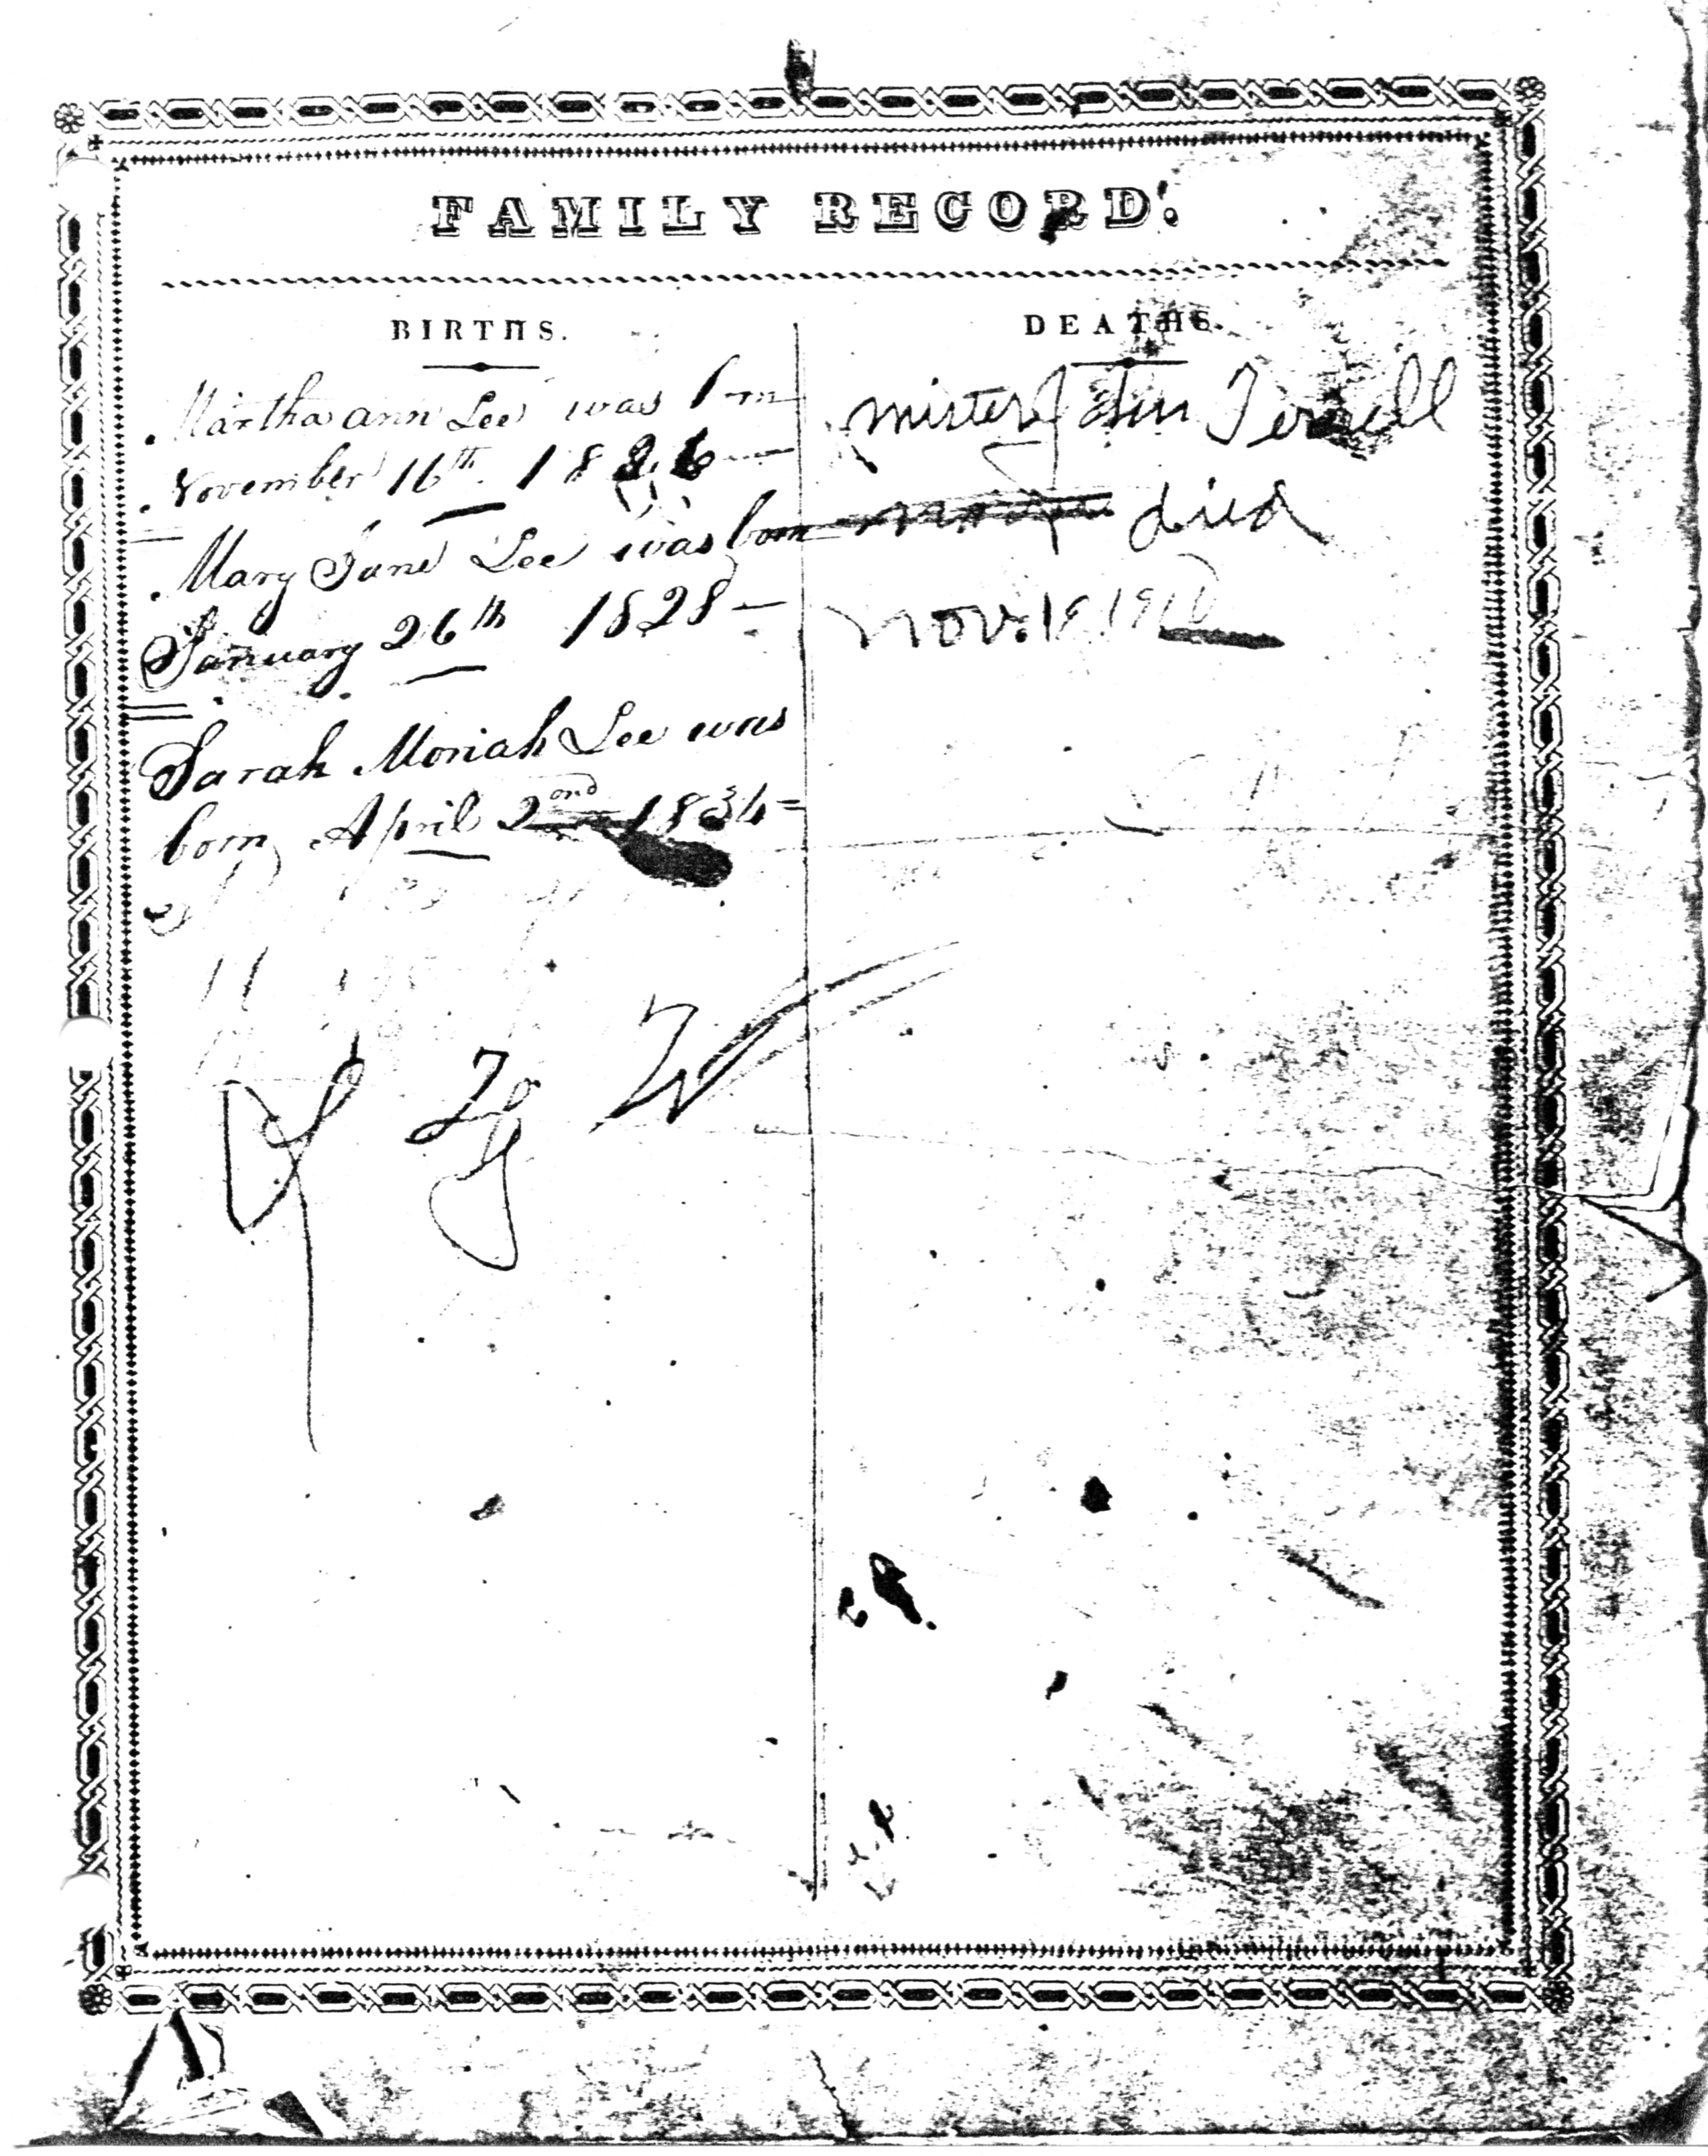 FAMILY RECORD.
BIRTHS.
Martha ann Lee was born
November 16th 1826
Mary Jane Lee was born
January 26th 1828
Sarah Moriah Lee was
born April 2ond 1834
DEATHS.
mister John Terrell
died
nov.